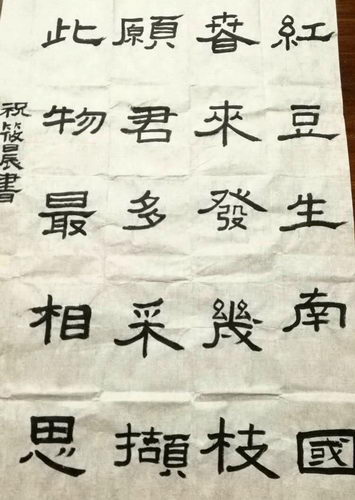 紅豆生南國
春來發幾枝
願君多采擷
此物最相思
祝筱晨書